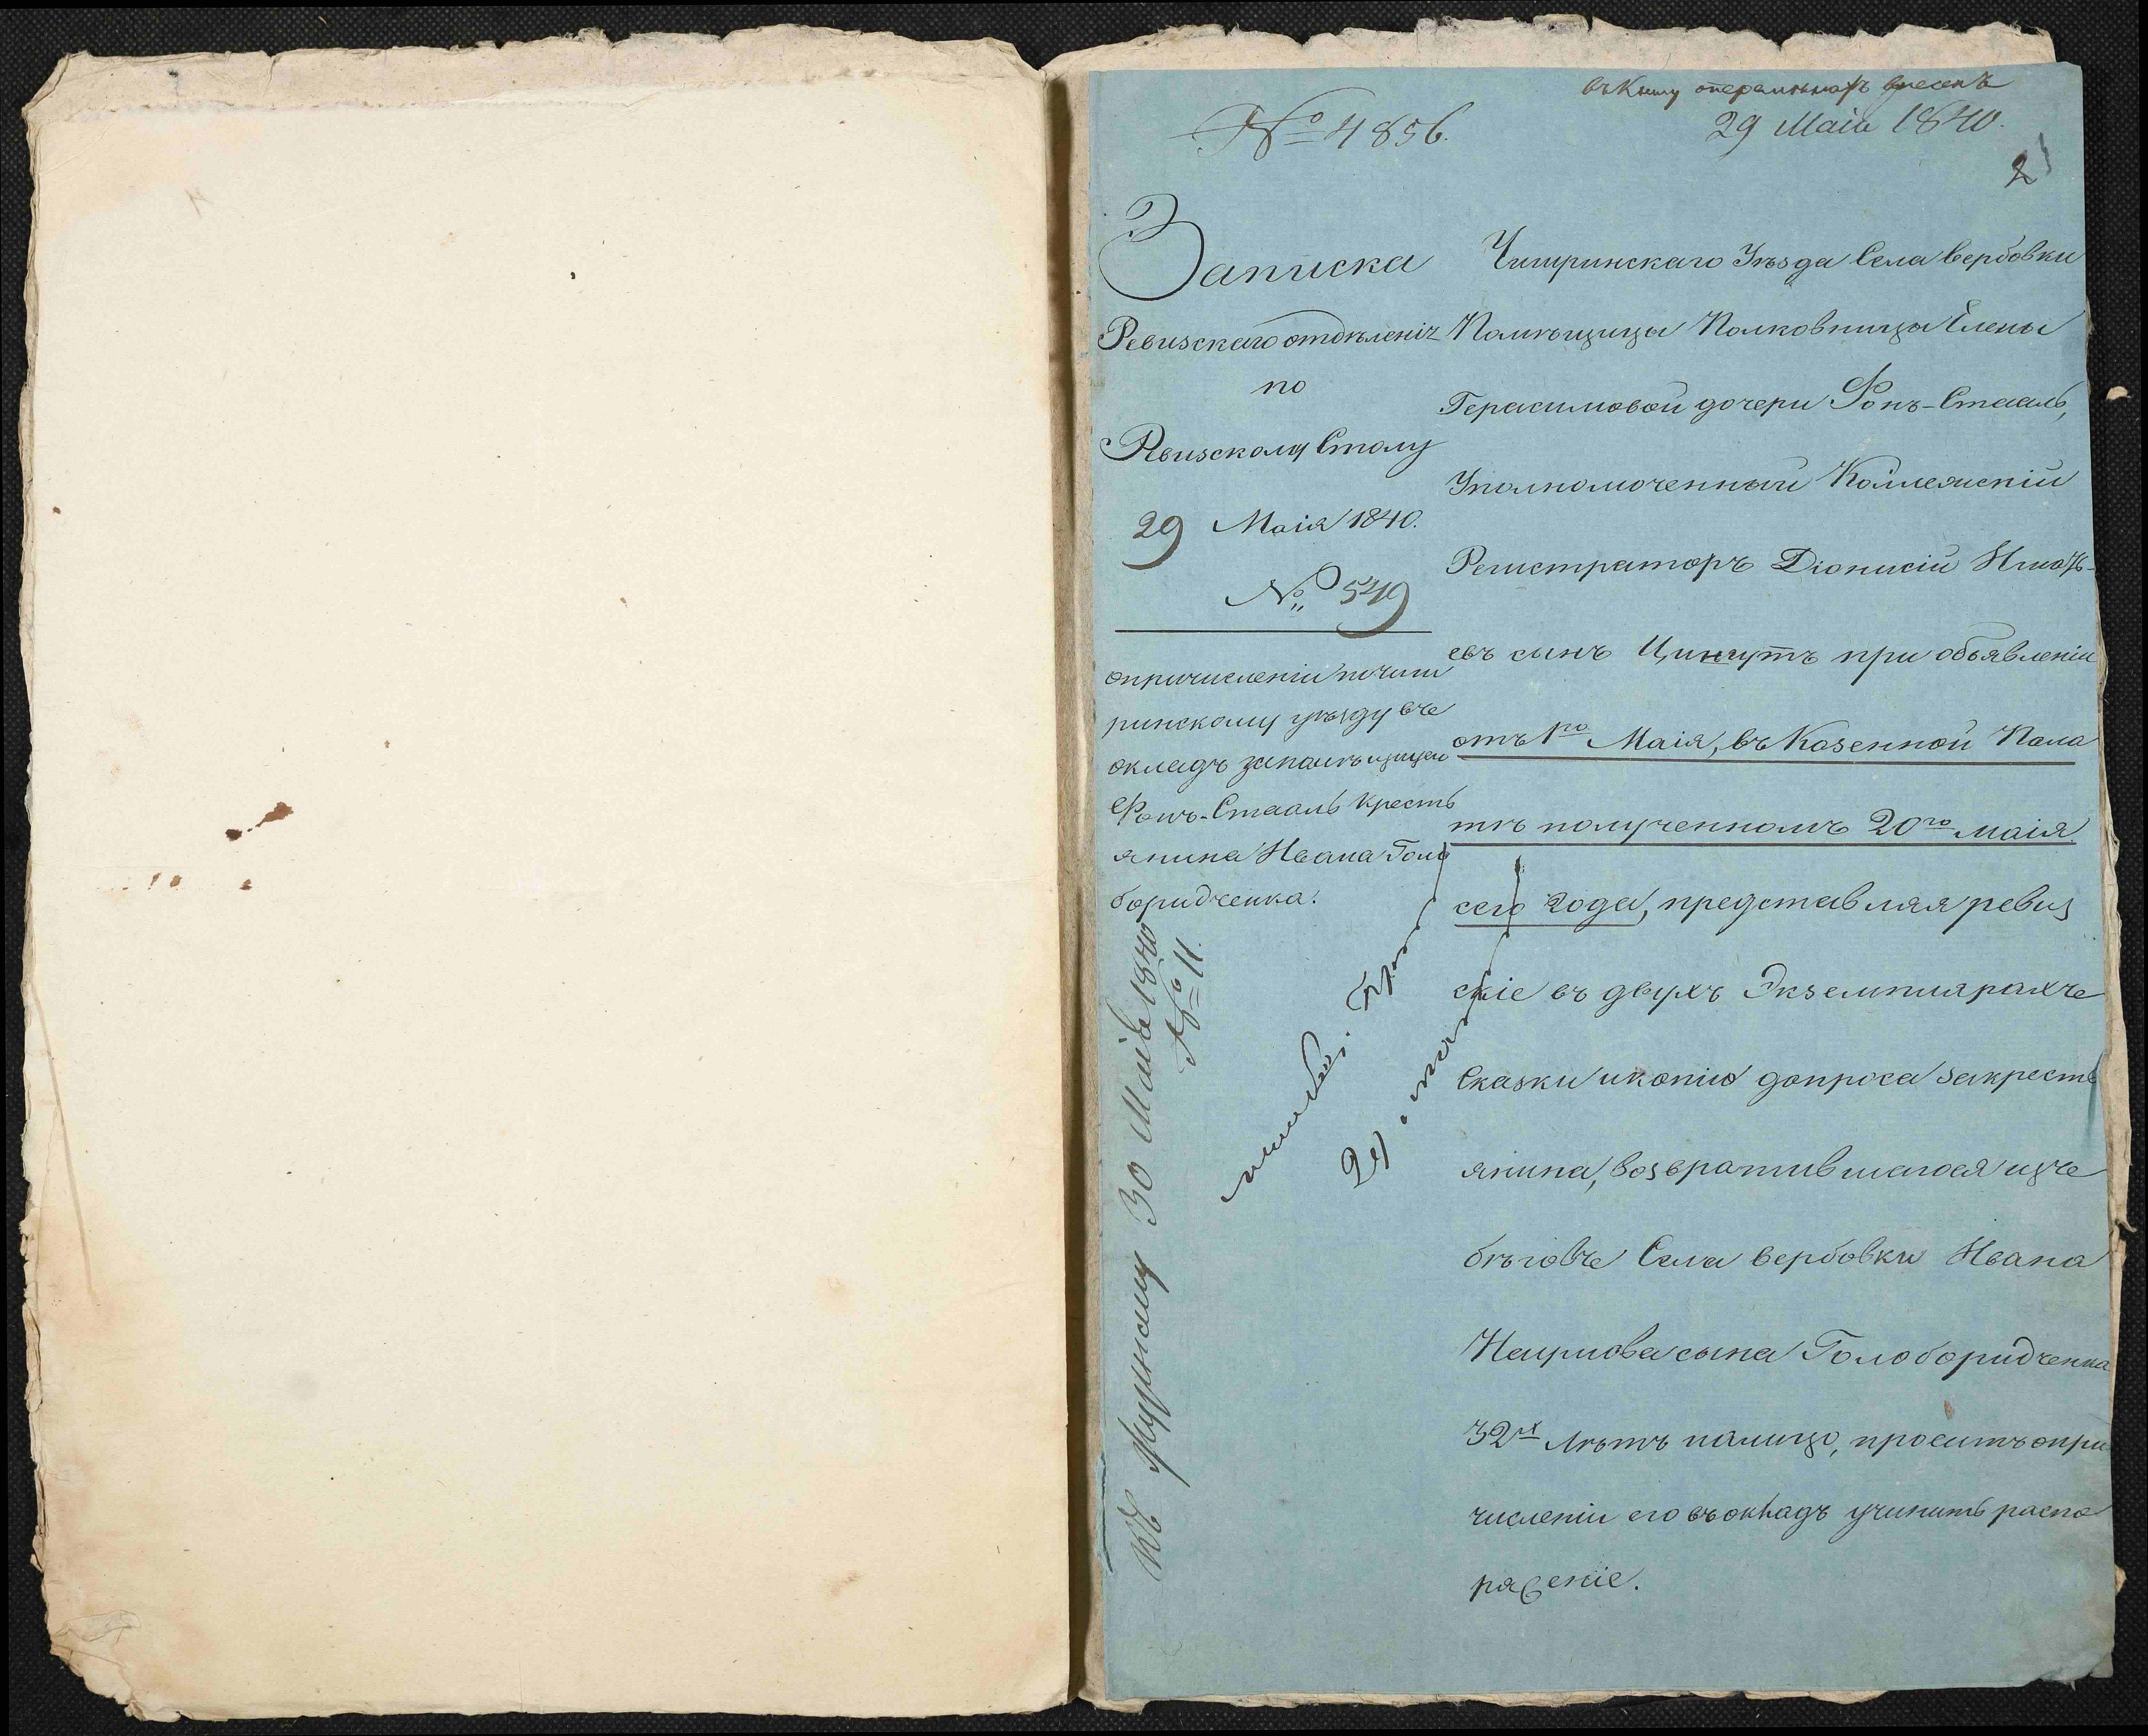 въ Книгу внесенъ
№ 4856.
29 Маія 1840.
2
Записка
Ревизскаго отдѣленія
по
Ревизскому Столу
29 Маія 1840.
№ 549
о причисленіи по Чиги
ринскому уѣзду въ
окладъ за помѣщицею
Фонъ-Стааль кресть
янина Ивана Голо
боридченка.
Къ Журналу 30 Маія 1840
№ 11.
Чигиринскаго Уѣзда Села Вербовки
Помѣщицы Полковницы Елены
Герасимовой дочери Фонъ-Стааль,
Уполномоченный Коллежскій
Регистраторъ Діонисій Игнать-
евъ сынъ при объявленіи
отъ 1го Маія, въ Казенной Пала
тѣ полученномъ 20го маія
сего года, представляя ревиз
скіе въ двухъ Экземплярахъ
Сказки и копію допроса за кресть
янина, возвратившагося изъ
бѣговъ Села Вербовки Ивана
сына Голоборидченка
32х лѣтъ на лицо, проситъ о при
численіи его въ окладъ учинить распо
ряженіе.